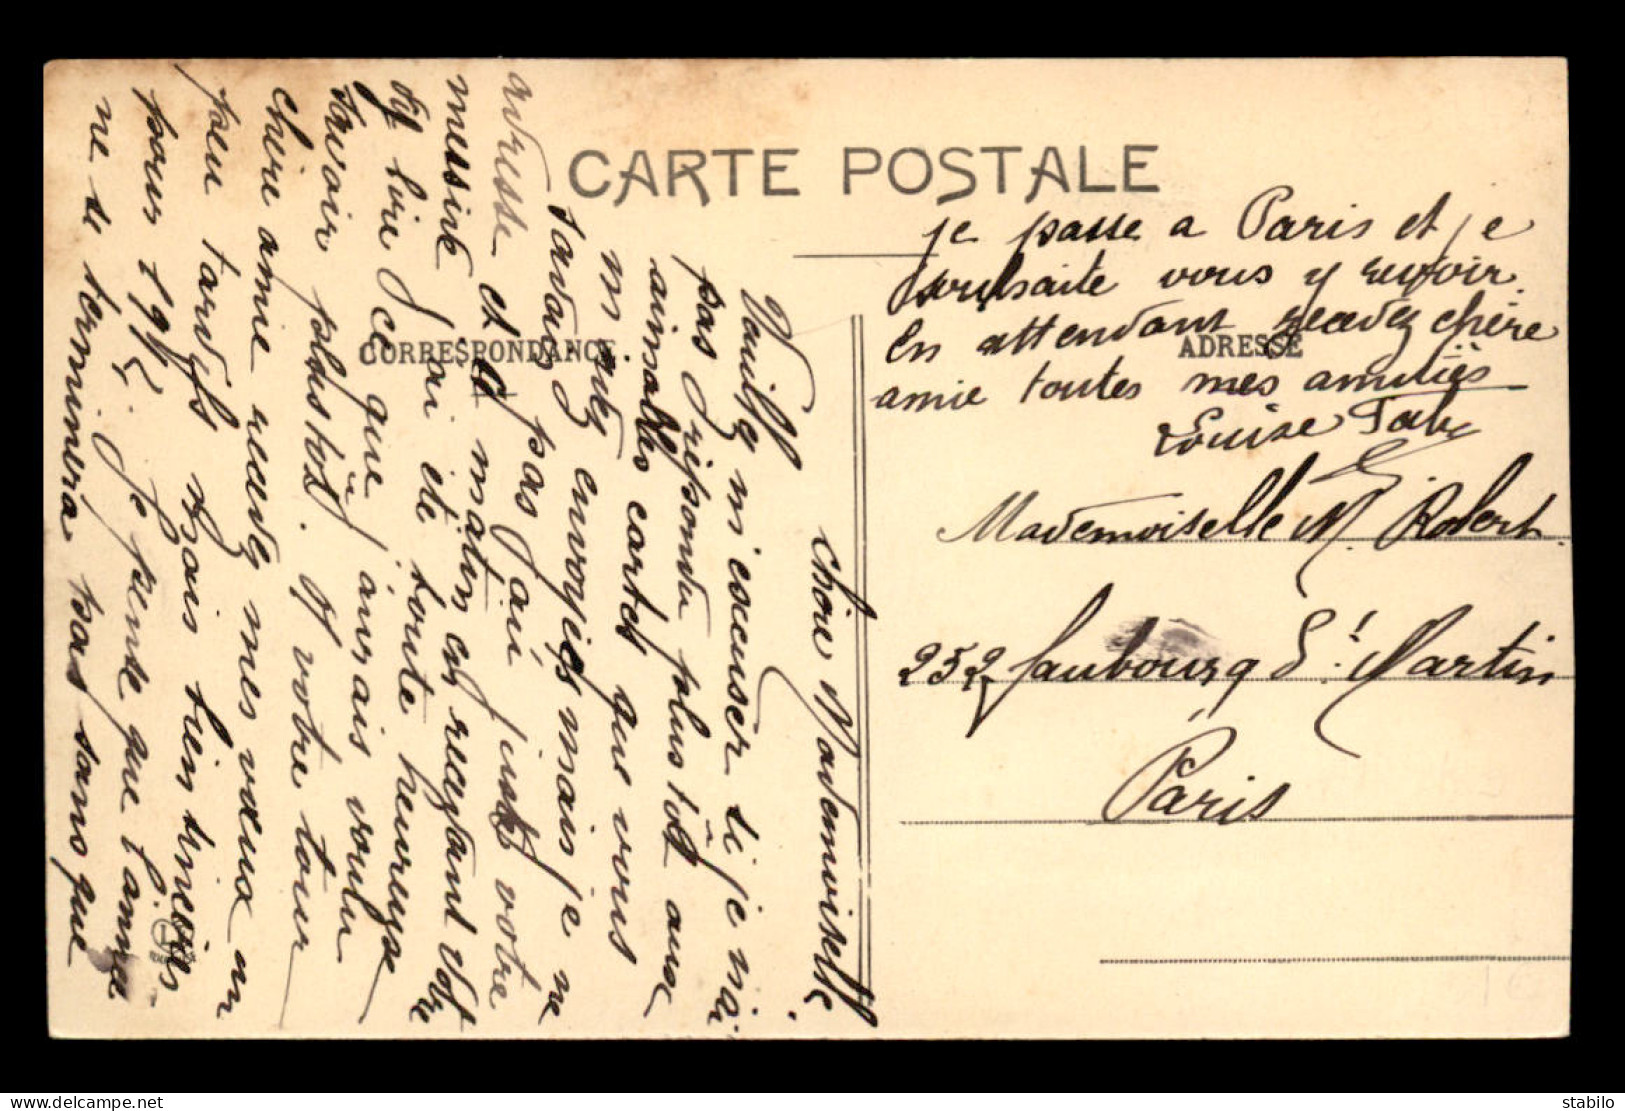 CARTE POSTALE
CORRESPONDANCE
ADRESSE
chère Mademoiselle
Veuillez m'escuser si je n'ai
pas répondu plus tôt aux
aimables cartes que vous
m'avez envoyiés mais je ne
savais pas j'ai juste votre
adresse et ce matin en recevant votre
j'ai été toute heureuse
ce que j'aurais voulu
savoir plus tôt. votre tour
chère amie recevez mes vœux un
peu tardifs mais bien sincères
pour 191 je pense que l'année
ne se terminera pas sans que
je passe a Paris et je
souhaite vous y revoir.
En attendant recevez chère
amie toutes mes amitiés
Louise
Mademoiselle M. Robert.
252 faubourg St Martin
Paris
stabilo
www.delcampe.net